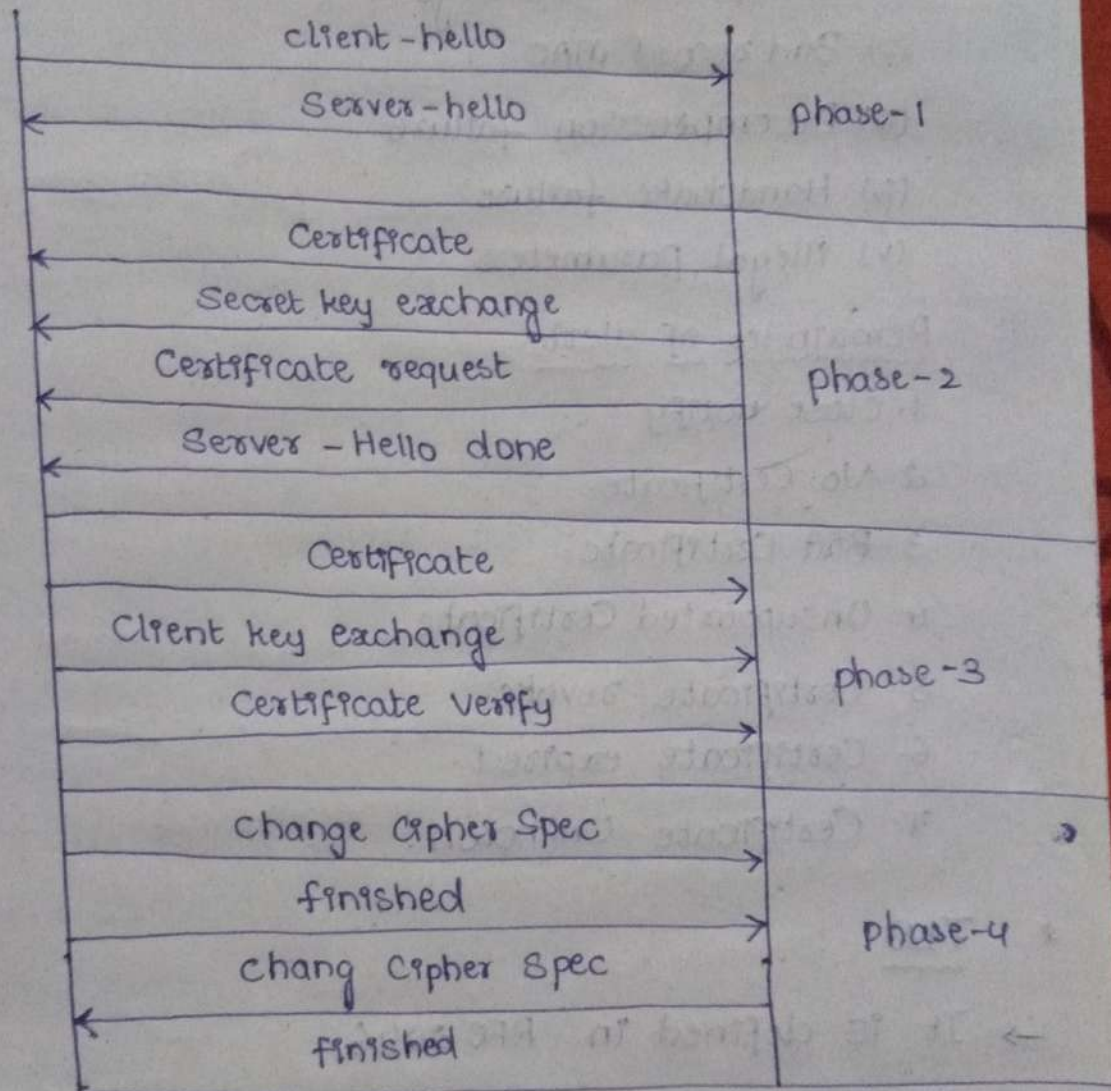 client-hello
Server-hello
phase-1
Certificate
Secret key exchange
Certificate request
phase-2
Server - Hello done
Certificate
Client key exchange
phase-3
Certificate verify
Change Cipher Spec
finished
phase-4
Chang Cipher Spec
finished